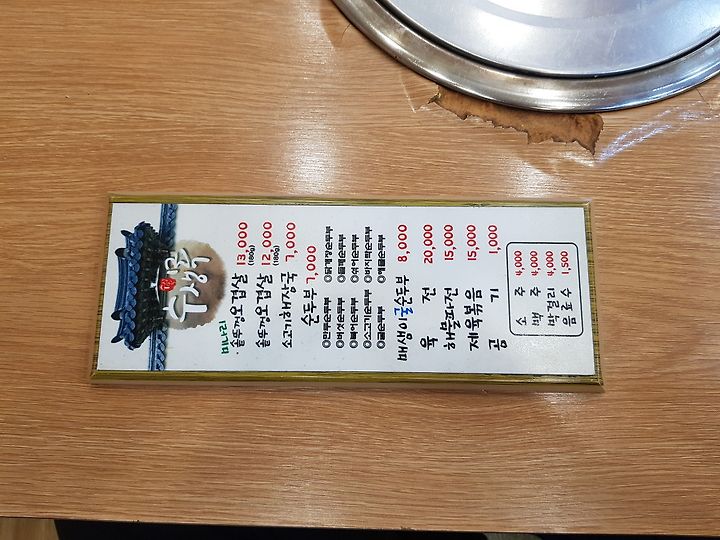 수생록
미나리
솥뚜껑오겹살 13,000
(180g)
솥뚜껑오겹살 12,000
(180g)
소고기해장국 7,000
순두부 7,000
◎만두순두부 ◎닭개장순두부
◎버섯순두부 ◎들깨순두부
◎북어순두부 ◎섞어순두부
◎소고기순두부 ◎바지락순두부
◎굴순두부 ◎해물순두부
매생이굴순두부 8,000
육전 20,000
해물파전 15,000
제육볶음 15,000
공기 1,000
소주 4,000
맥주 4,000
막걸리 4,000
음료수 1,500